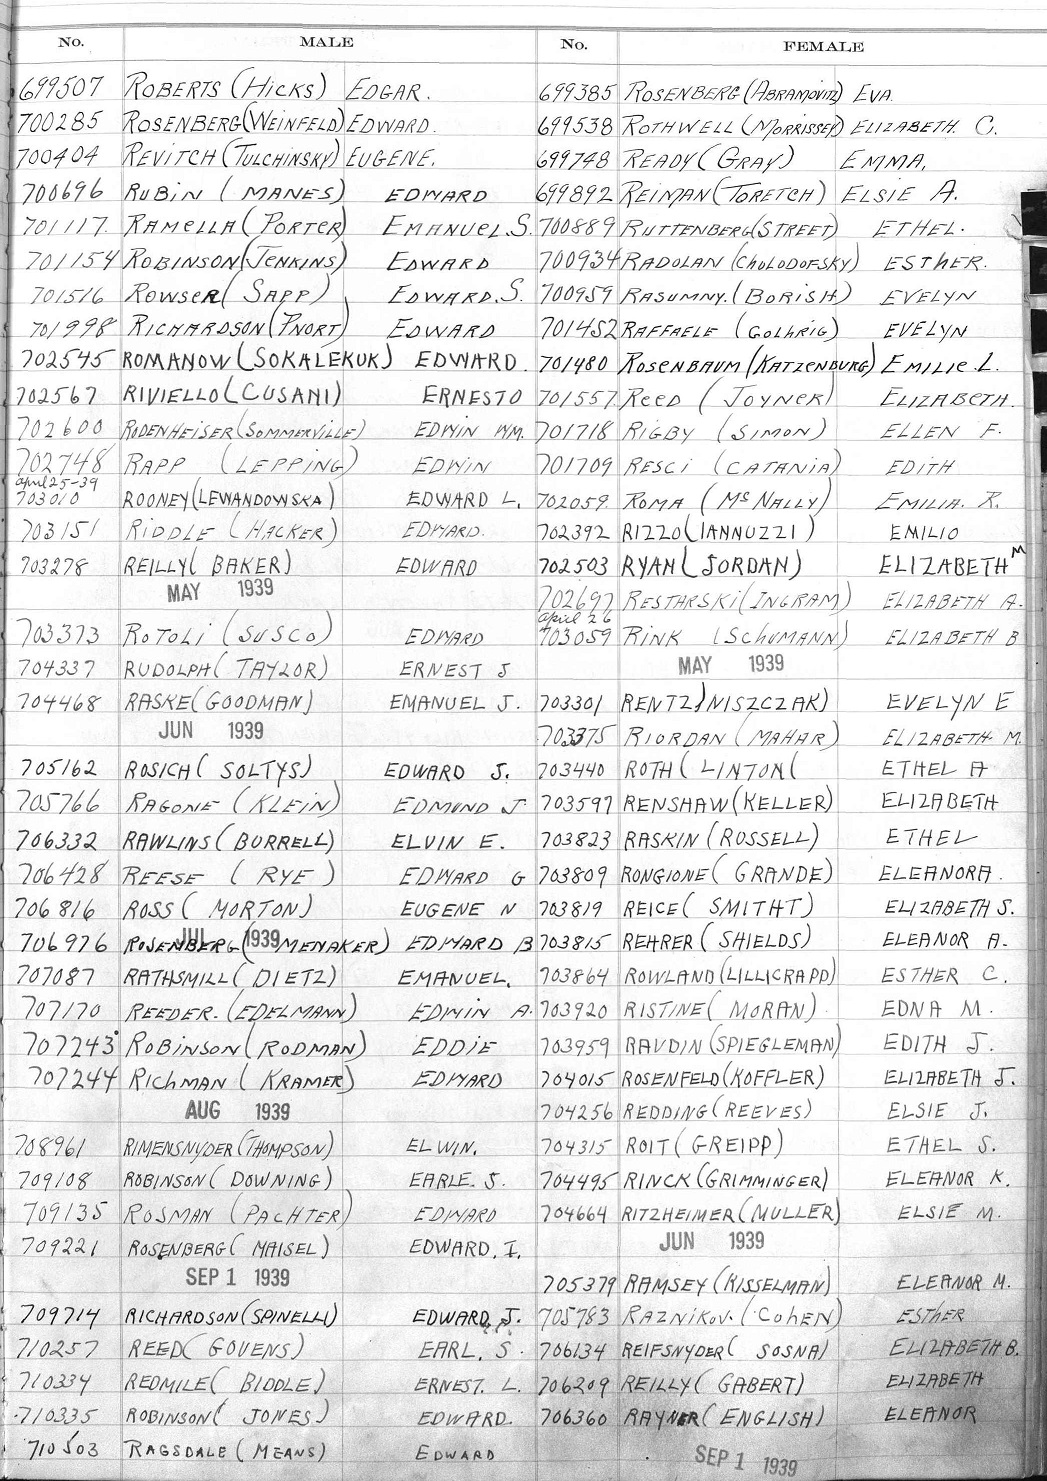 No. MALE No. FEMALE
699507 ROBERTS (HICKS) EDGAR. 699385 ROSENBERG (ABRAMOVITZ) EVA
700285 ROSENBERG (WEINFELD) EDWARD. 699538 ROTHWELL (MORRISSEY) ELIZABETH C.
700404 REVITCH (TULCHINSKY) EUGENE. 699748 READY (GRAY) EMMA.
700696 RUBIN (MANES) EDWARD 699892 REIMAN (TORETCH) ELSIE A.
701117. RAMELLA (PORTER) EMANUEL.S. 700889 RUTTENBERG (STREET) ETHEL.
701154 ROBINSON (JENKINS) EDWARD 700934 RADOLAN (CHOLODOFSKY) ESTHER.
701516 ROWSER (SAPP) EDWARD.S. 700959 RASUMNY. (BORISH) EVELYN
701998 RICHARDSON (PNORT) EDWARD 701452 RAFFAELE (GOLHRIG) EVELYN
702545 ROMANOW (SOKALEKUK) EDWARD. 701480 ROSENBAUM (KATZENBURG) EMILIE.L.
702567 RIVIELLO (CUSANI) ERNESTO 701557 REED (JOYNER) ELIZABETH.
702600 RODENHEISER (SOMMERVILLE) EDWIN WM. 701718 RIGBY (SIMON) ELLEN F.
702748 RAPP (LEPPING) EDWIN 701709 RESCI (CATANIA) EDITH
april 25-39
703010 ROONEY (LEWANDOWSKA) EDWARD L. 702059. ROMA (McNALLY) EMILIA. R.
703151 RIDDLE (HACKER) EDWARD. 702392 RIZZO (IANNUZZI) EMILIO
703278 REILLY (BAKER) EDWARD 702503 RYAN (JORDAN) ELIZABETH M
MAY 1939 702697 RESTARSKI (INGRAM) ELIZABETH A.
april 26
703373 ROTOLI (SUSCO) EDWARD 703059 RINK (SCHUMANN) ELIZABETH B
704337 RUDOLPH (TAYLOR) ERNEST J MAY 1939
704468 RASKE (GOODMAN) EMANUEL J. 703301 RENTZ (NISZCZAK) EVELYN E
JUN 1939 703375 RIORDAN (MAHAR) ELIZABETH M.
705162 ROSICH (SOLTYS) EDWARD J. 703440 ROTH (LINTON( ETHEL A
705766 RAGONE (KLEIN) EDMUND J 703597 RENSHAW (KELLER) ELIZABETH
706332 RAWLINS (BURRELL) ELVIN E. 703823 RASKIN (RUSSELL) ETHEL
706428 REESE (RYE) EDWARD G 703809 RONGIONE (GRANDE) ELEANORA.
706816 ROSS (MORTON) EUGENE N 703819 REICE (SMITHT) ELIZABETH S.
JUL 1939
706976 ROSENBERG (MENAKER) EDWARD B 703815 REHRER (SHIELDS) ELEANOR A.
707087 RATHSMILL (DIETZ) EMANUEL. 703864 ROWLAND (LILLICRAPP) ESTHER C.
707170 REEDER. (EDELMANN) EDWIN A. 703920 RISTINE (MORAN) EDNA M.
707243 ROBINSON (RODMAN) EDDIE 703959 RAVDIN (SPIEGLEMAN) EDITH J.
707244 RICHMAN (KRAMER) EDWARD 704015 ROSENFELD (KOFFLER) ELIZABETH J.
AUG 1939 704256 REDDING (REEVES) ELSIE J.
708961 RIMENSNYDER (THOMPSON) ELWIN. 704315 ROIT (GREIPP) ETHEL S.
709108 ROBINSON (DOWNING) EARLE. S. 704495 RINCK (GRIMMINGER) ELEANOR K.
709135 ROSMAN (PACHTER) EDWARD 704664 RITZHEIMER (MULLER) ELSIE M.
709221 ROSENBERG (MAISEL) EDWARD. I. JUN 1939
SEP 1 1939 705379 RAMSEY (KISSELMAN) ELEANOR M.
709714 RICHARDSON (SPINELLI) EDWARD J. 705783 RAZNIKOV. (COHEN) ESTHER
710257 REED (GOVENS) EARL. S. 706134 REIFSNYDER (SOSNA) ELIZABETH B.
710334 REDMILE (BIDDLE) ERNEST. L. 706209 REILLY (GABERT) ELIZABETH
710335 ROBINSON (JONES) EDWARD. 706360 RAYNER (ENGLISH) ELEANOR
710503 RAGSDALE (MEANS) EDWARD SEP 1 1939